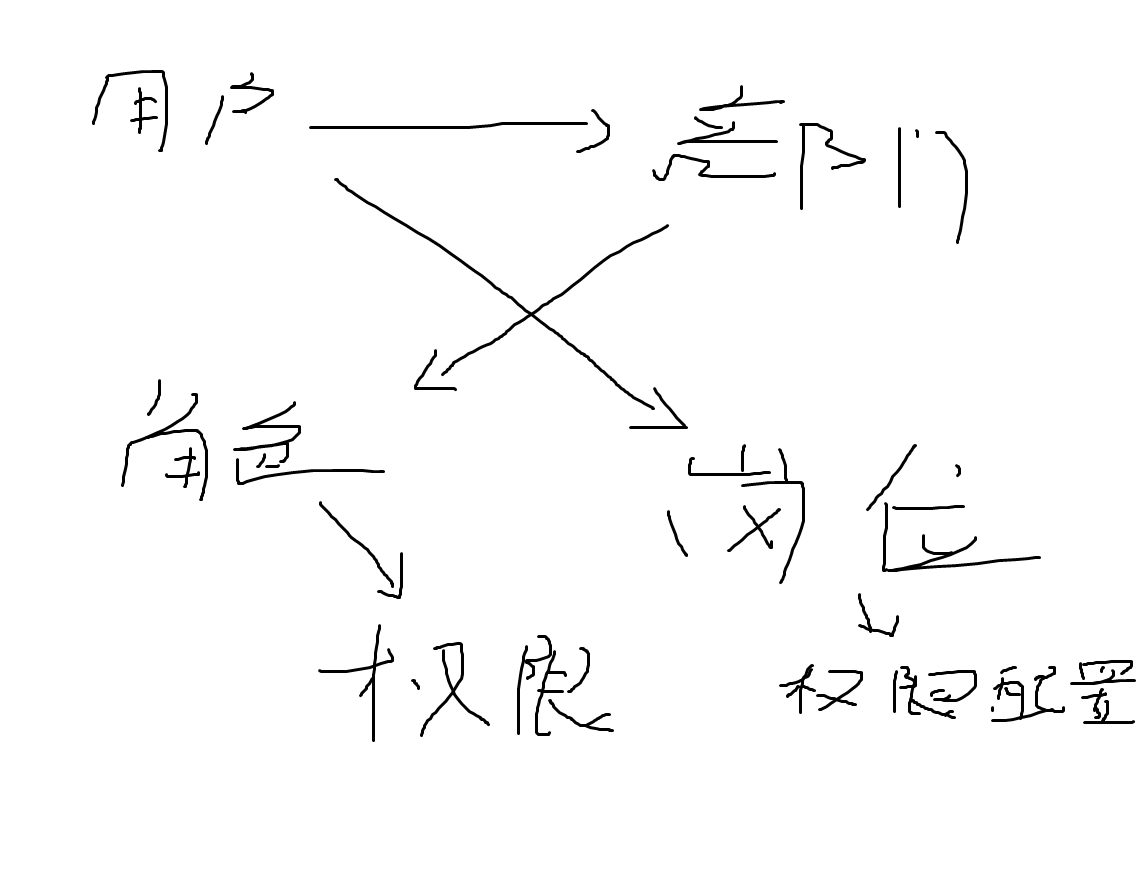 用户 部门
角色 岗位
权限 权限配置